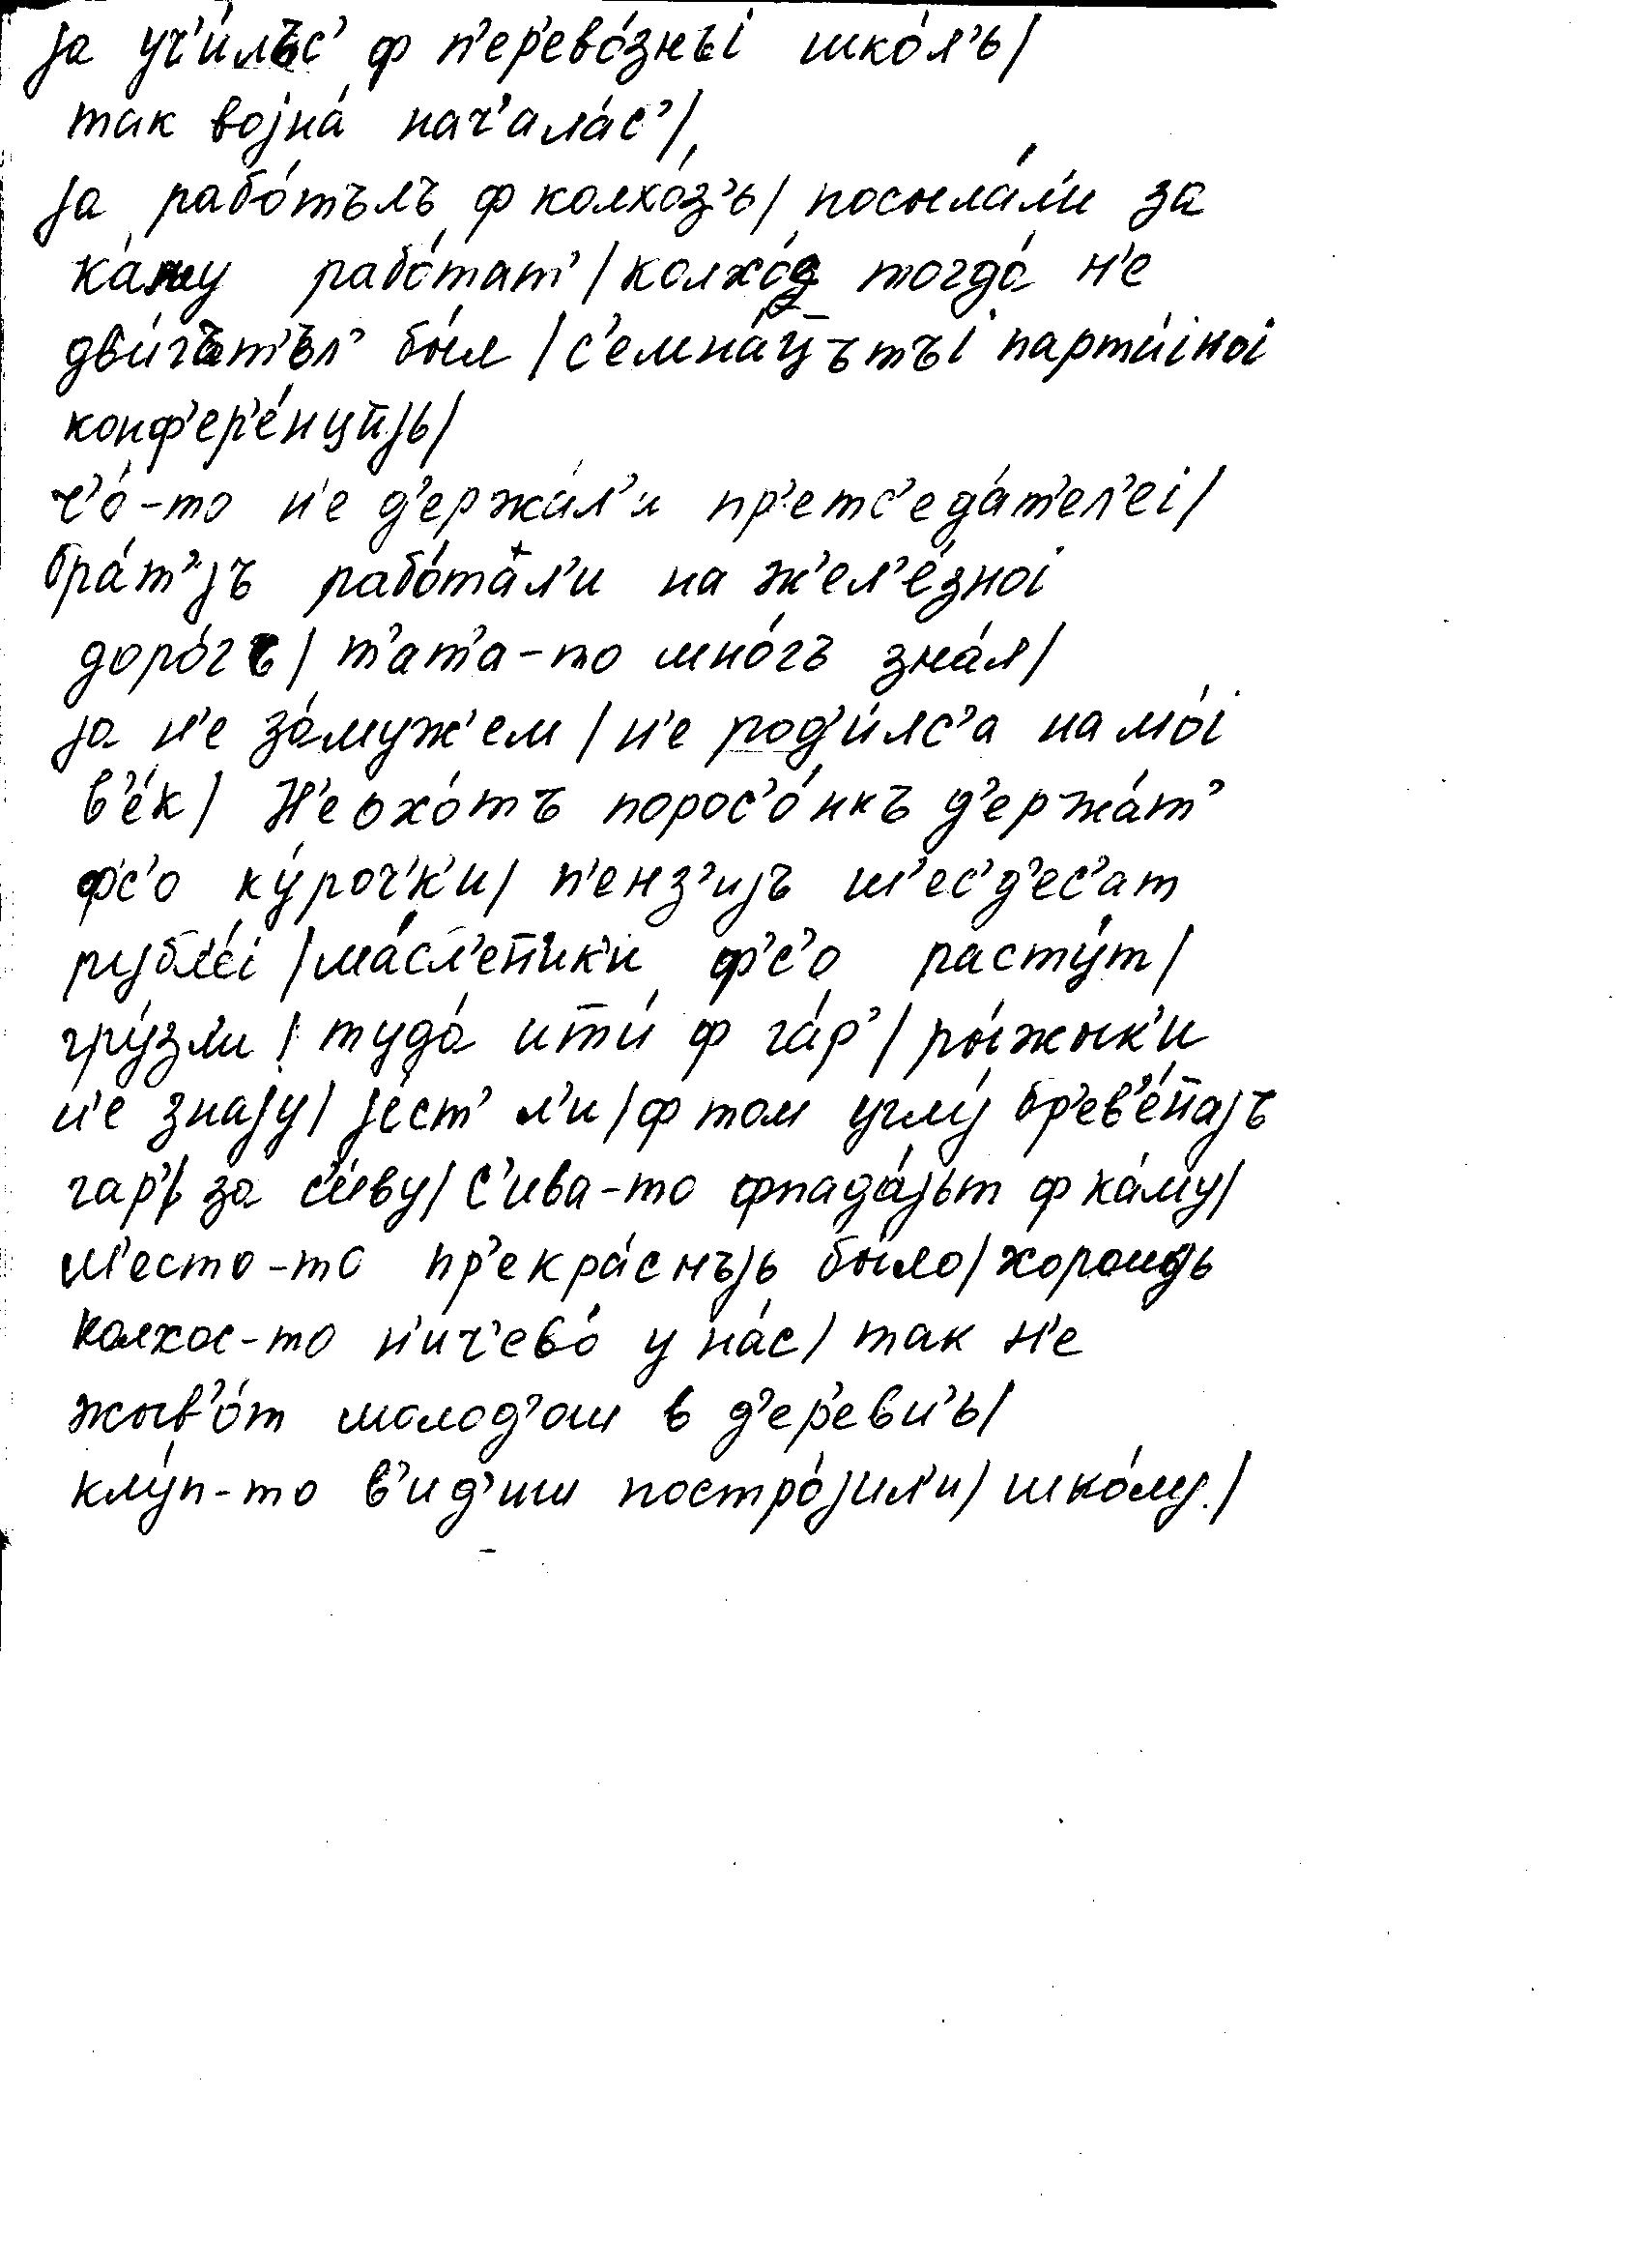 ја уч’и́лъс’ ф п’ер’ево́знъi шко́л’ь/
так војна́ нач’ала́с’/
ја рабо́тълъ ф колхо́з’ь/ посыла́л’и за
ка́му рабо́тат’/колхо́з тогда́ н’е
дв’и́гът’ьл’ бы́л/с’емна́цътъi парти́iноi
конф’ер’е́нцыјь/
ч’о́-то н’е д’ержа́л’и пр’етс’еда́т’ел’еi/
бра́т’јъ рабо́тал’и на ж’ел’е́зноi
доро́гь/ т’ат’а-то мно́гъ зна́л/
ја н’е за́муж’ем/н’е род’и́лс’а на мо́i
в’е́к/ Н’еохо́тъ порос’о́нкъ д’ержа́т’
фс’о ку́роч’к’и/ п’енз’ијъ ш’ес’д’ес’ат
рубл’е́i/ма́сл’еп’ик’и ф’с’о расту́т/
гру́зл’и/ туда́ ит’и́ ф га́р’/ры́жык’и
н’е знају/ је́ст’ л’и/ф том углу́ бр’ев’е́наjъ
гар’/ за с’и́ву/ с’ива-то фпада́јьт ф ка́му/
м’есто-то пр’екра́снъјь бы́ло/хорошъјь
колхос-то н’ич’ево́ у на́с/ так н’е
жыв’о́т молод’ош в д’ер’евн’ь/
клу́п-то в’ид’иш постро́јил’и/ шко́лу/